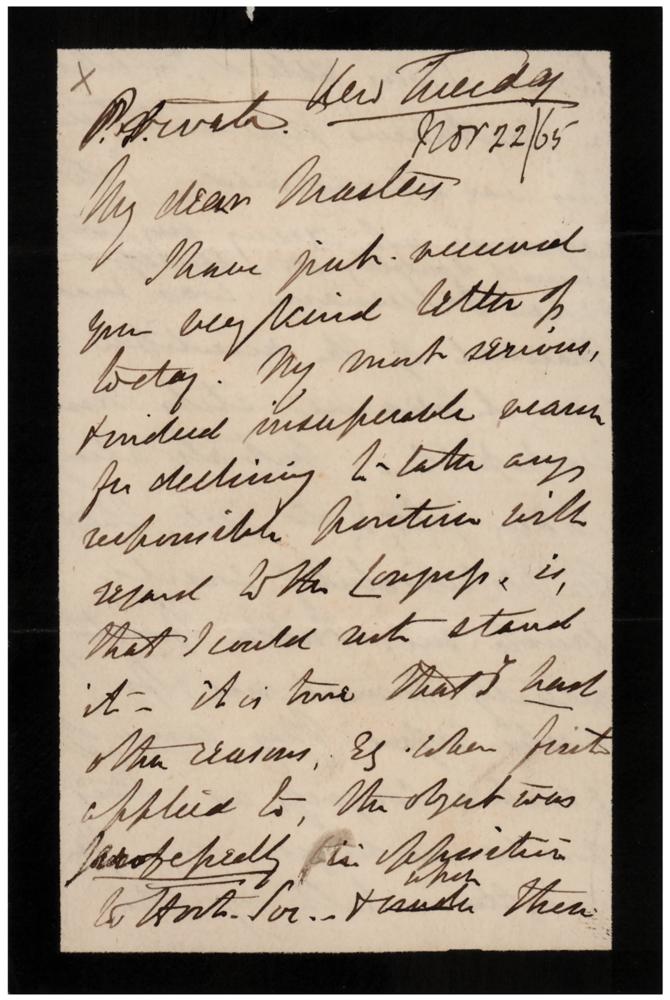 X
Kew Tuesday
Private.
Nov 22/65
My dear Masters
I have just received
your very kind letter of
today. My most serious,
& indeed insuperable reason
for declining to take any
responsible position with
regard to the Congress, is,
that I could not stand
it – it is true that I had
other reasons, Eg. when first
applied to, the object was
professedly in opposition
to Hort. Soc. – & under upon then